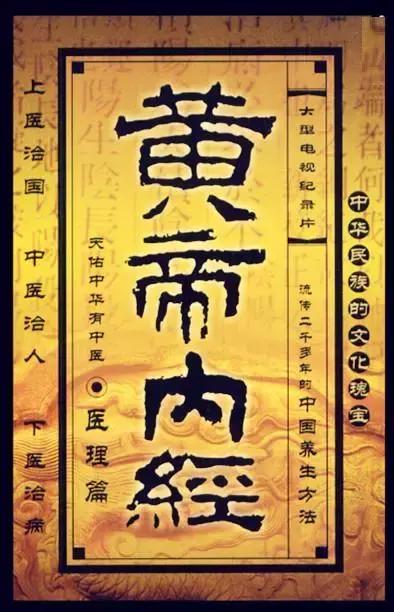 黄帝内經
大型电视纪录片
流传二千多年的中国养生方法
中华民族的文化瑰宝
天佑中华有中医
医理篇
上医治国 中医治人 下医治病